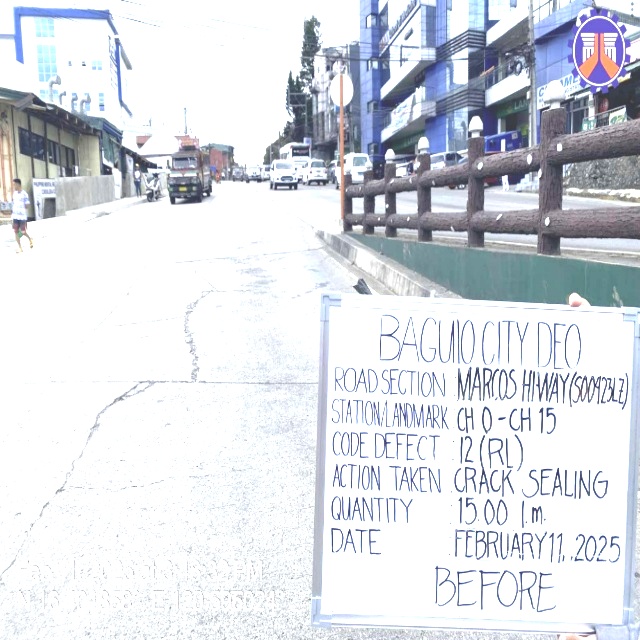 BAGUIO CITY DEO
ROAD SECTION : MARCOS HIWAY (S00923LZ)
STATION/LANDMARK CH 0 - CH 15
CODE DEFECT : 12 (RL)
ACTION TAKEN : CRACK SEALING
QUANTITY : 15.00 l.m.
DATE : FEBRUARY 11, 2025
BEFORE